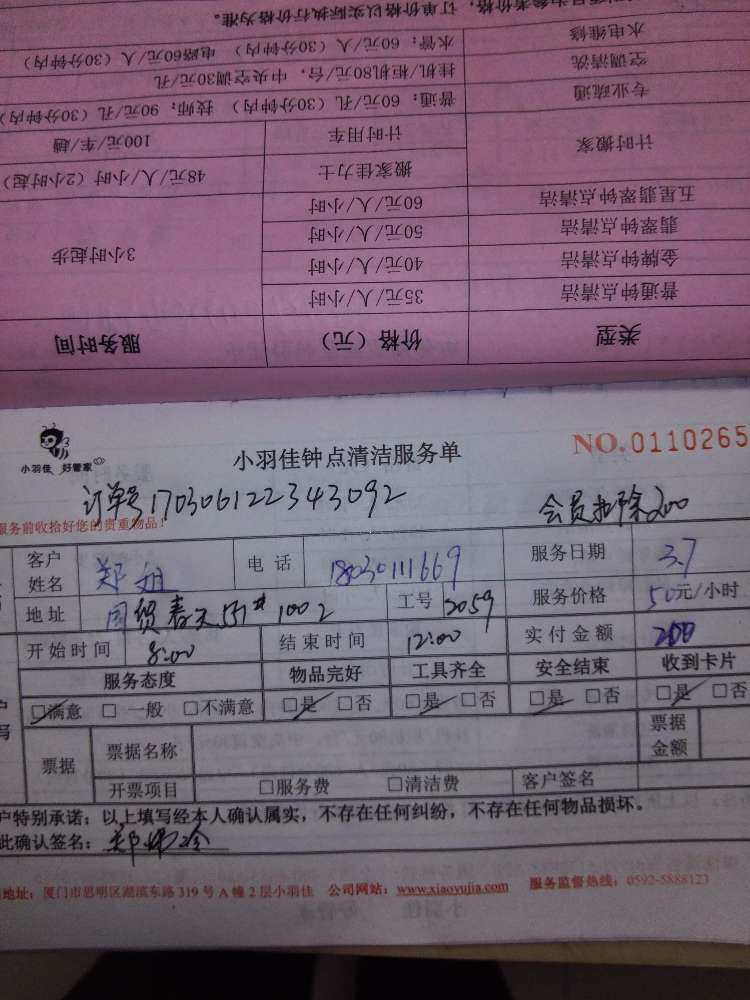 类型 价格（元） 服务时间
普通钟点清洁 35元/人/小时
金牌钟点清洁 40元/人/小时 3小时起步
翡翠钟点清洁 50元/人/小时
五星翡翠钟点清洁 60元/人/小时
计时搬家 搬家佳力士 48元/人/小时（2小时起）
计时用车 100元/车/趟
专业疏通 普通：60元/孔（30分钟内） 技师：90元/孔（30分钟内）
空调清洗 挂机/柜机80元/台，中央空调30元/孔
水电维修 水管：60元/人（30分钟内） 电路60元/人（30分钟内）
参考价格，订单价格以实际执行价格为准。
小羽佳 好管家
小羽佳钟点清洁服务单 NO.0110265
订单号170306122343092 会员扣除200
服务前收拾好您的贵重物品！
客户姓名 郑姐 电话 18030111669 服务日期 3.7
地址 国贸春天551# 1002 工号 2059 服务价格 50元/小时
开始时间 8:00 结束时间 12:00 实付金额 200
服务态度 物品完好 工具齐全 安全结束 收到卡片
□满意 □一般 □不满意 □是 □否 □是 □否 □是 □否 □是 □否
票据 票据名称 票据金额
开票项目 □服务费 □清洁费 客户签名
户特别承诺：以上填写经本人确认属实，不存在任何纠纷，不存在任何物品损坏。
此确认签名：
地址：厦门市思明区湖滨东路319号A幢2层小羽佳 公司网站：www.xiaoyujia.com 服务监督热线：0592-5888123